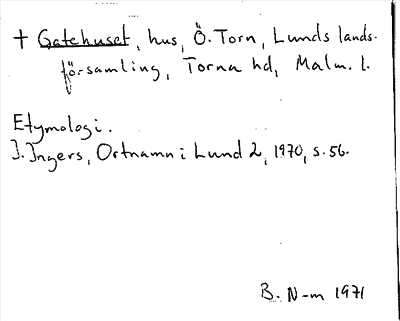 † Gatehuset, hus, Ö. Torn, Lunds lands-
församling, Torna hd, Malm. l.
Etymologi.
I. Ingers, Ortnamn i Lund 2, 1970, s. 56.
B. N-m 1971